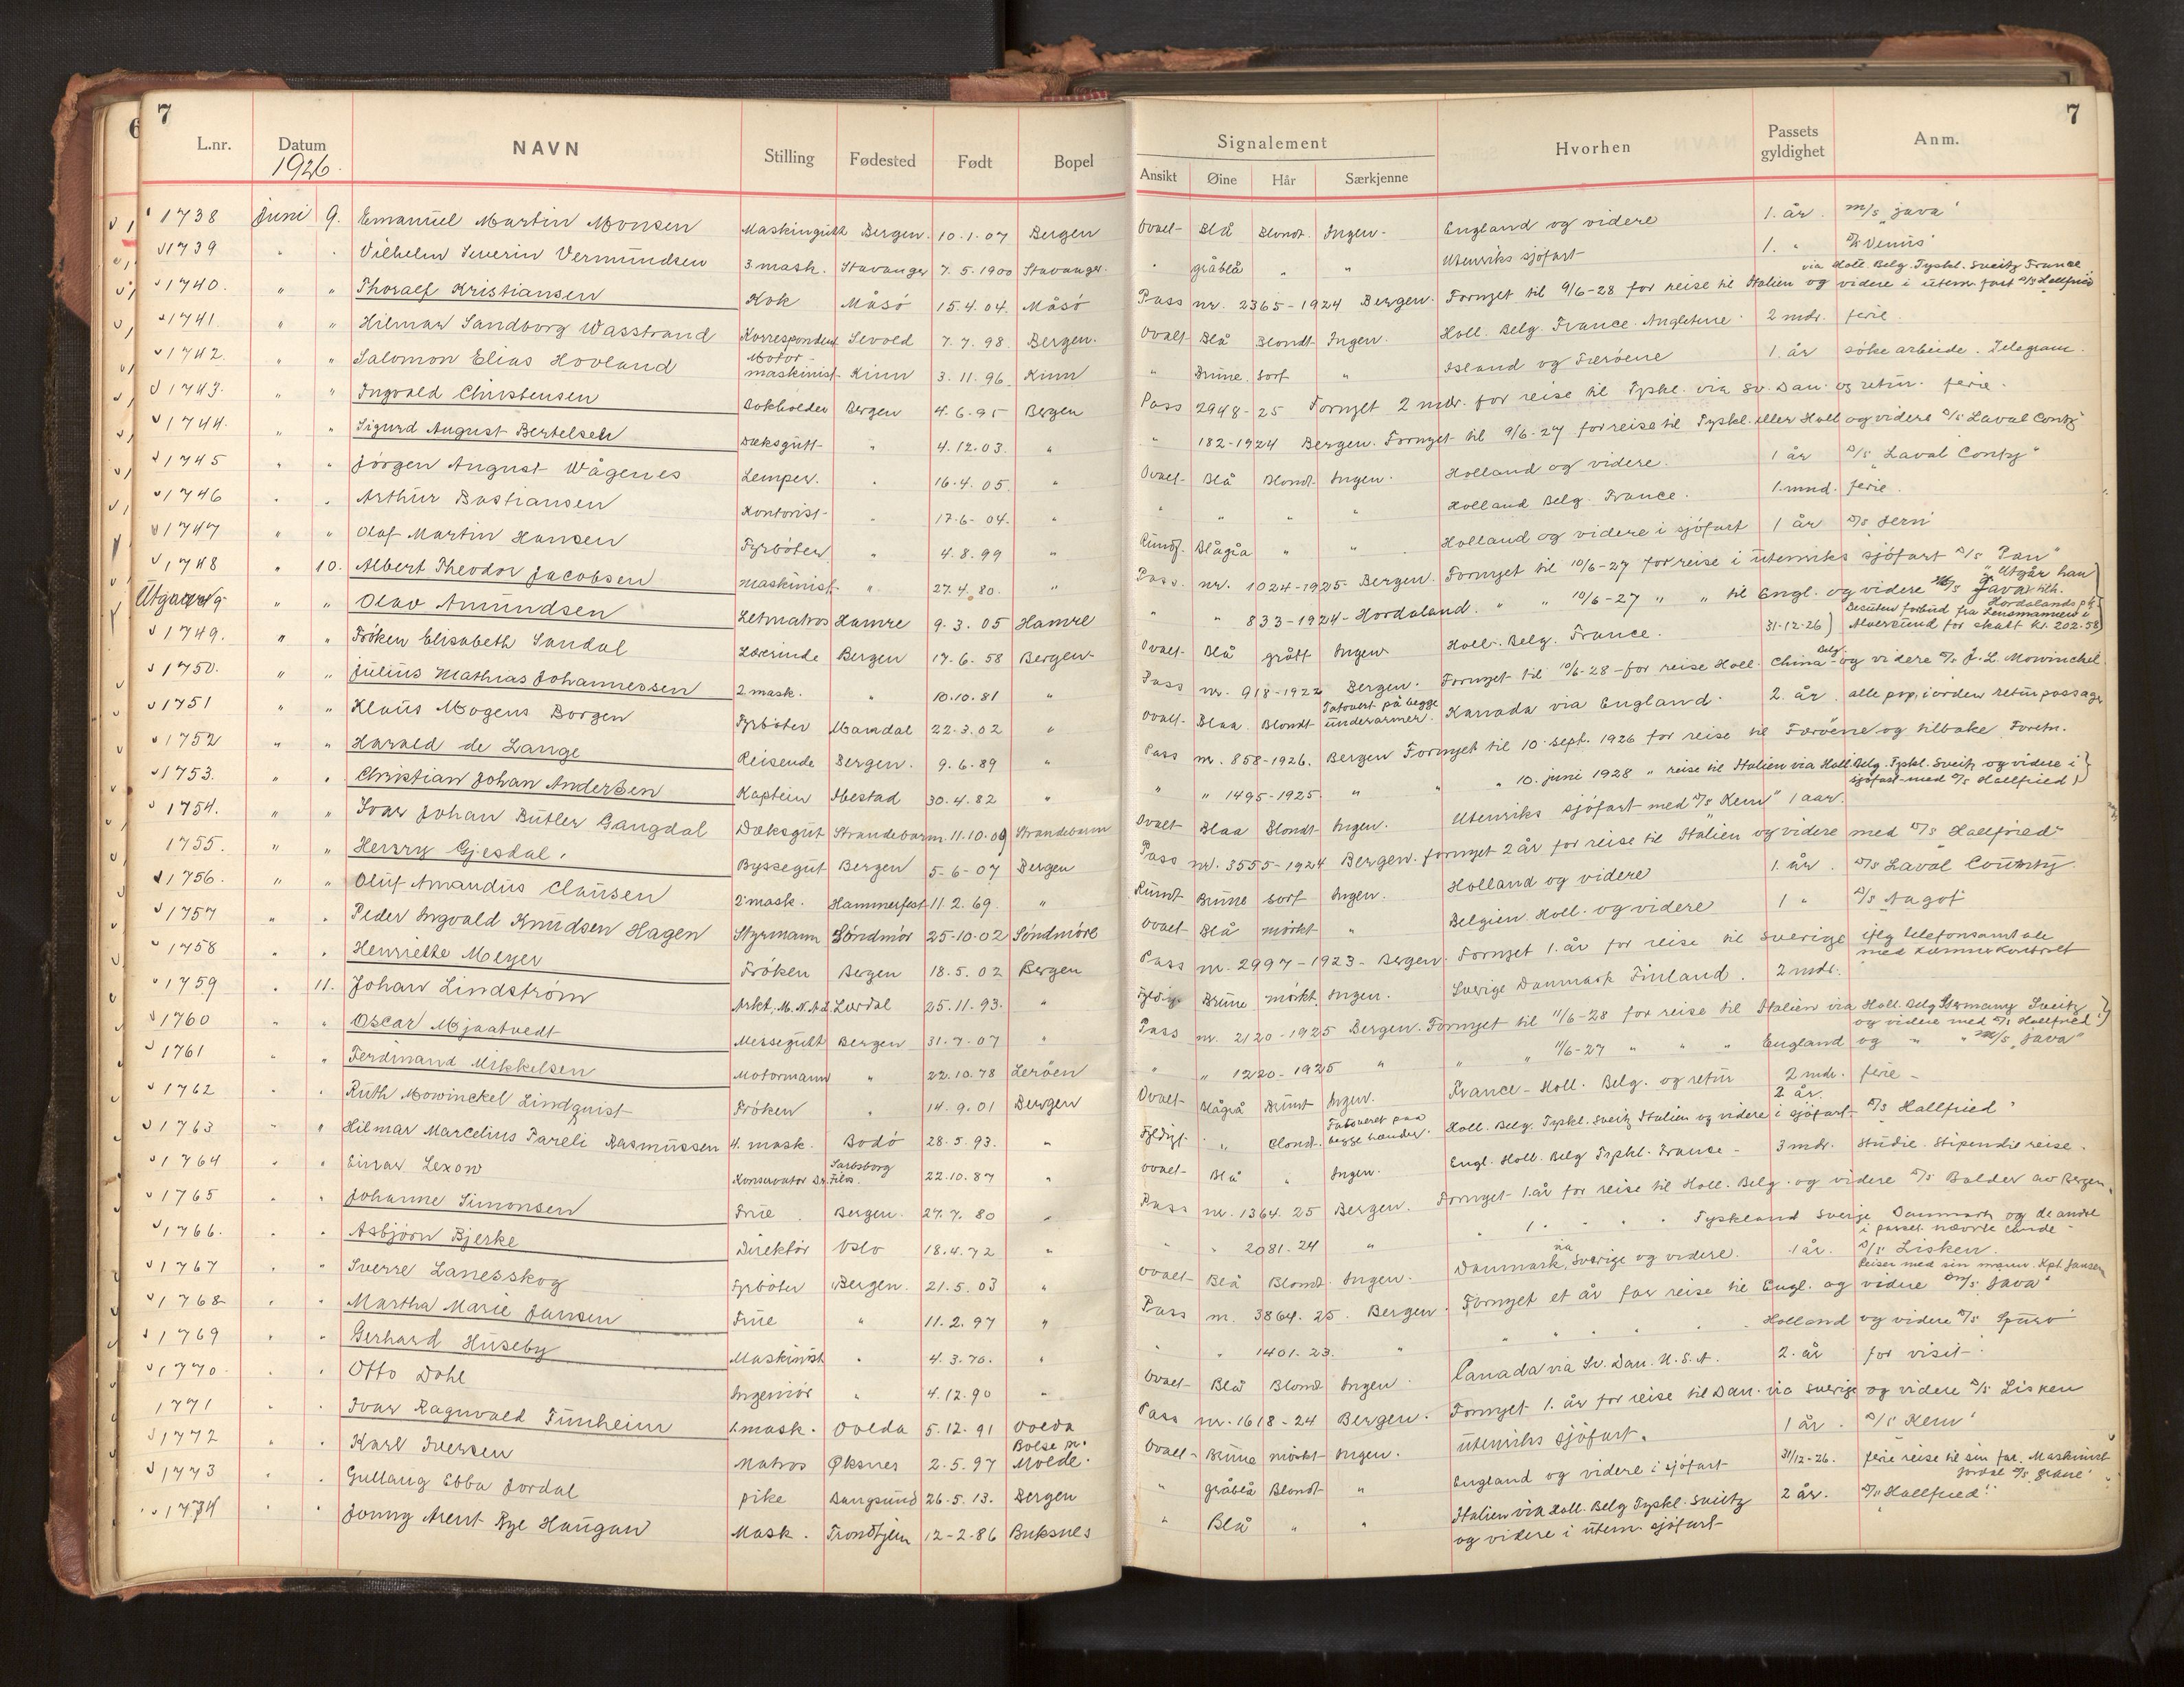 7
L.nr. Datum NAVN Stilling Fødested Født Bopel
1926.
Signalement Hvorhen Passets gyldighet Anm.
Ansikt Øine Hår Særkjenne
7
6
1738 Juni 9. Emanuel Martin Monsen Maskingutt Bergen. 10.1.07 Bergen Ovalt Blå Blondt. Ingen. England og videre 1. år. m/s "Java"
1739 " . Vilhelm Severin Vermundsen 3. mask. Stavanger 7.5.1900 Stavanger. " gråblå " " Utenriks sjöfart 1. " "Venus"
1740. " " Thoralf Kristiansen Kok Måsö 15.4.04. Måsö Pass nr. 2365-1924 Bergen. Fornyet til 9/6-28 for reise til Italien og videre i utenr. fart s/s Hallfried
via Holl. Belg. Tyskl. Sveitz France
1741. " " Hilmar Sandborg Wasstrand Korrespondent Sevold 7.7.98. Bergen. Ovalt Blå Blondt Ingen. Holl. Belg. France. Angleterre. 2 mdr. ferie.
1742. " " Salomon Elias Hovland Motor-maskinist Kinn 3.11.96. Kinn " Brune. Sort " Island og Færöene 1. år söke arbeide. Telegram.
1743. " " Ingvald Christensen Bokholder Bergen 4.6.95 Bergen Pass 2948-25 Fornyet 2 mdr. for reise til Tyskl. via Sv. Dan. og retur. ferie.
1744. " " Sigurd August Bertelsen Dæksgutt " 4.12.03. " " 182-1924 Bergen. Fornyet til 9/6-27 for reise til Tyskl. eller Holl og videre s/s Laval Conty
1745 " . Jörgen August Wågenes Lemper. " 16.4.05. " Ovalt Blå Blondt Ingen. Holland og videre. 1 år s/s "Laval Conty"
1746 . . Arthur Bastiansen Kontorist " 17.6-04. " " " " " Holland Belg. France. 1. mnd. ferie.
1747 " " Olaf Martin Hansen Fyrböter " 4.8.99 " Rundt. Blågrå " " Holland og videre i sjöfart 1 år s/s Jern
1748 " 10. Albert Theodor Jacobsen Maskinist " 27.4.80. " Pass. nr. 1024-1925 Bergen. Fornyet til 10/6-27 for reise i utenriks sjöfart s/s "Pan"
Utgaar " " Olav Amundsen Letmatros Hamre 9.3.05 Hamre " " 833-1924-Hordaland. " " 10/6-27 " " til Engl. og videre m/s Java
Utgår han
Hordalands
Desuten forbud fra Lensmannen i
Alversund for skatt kr. 202.58
1749. " " Fröken Elisabeth Sandal Lærerinde Bergen 17.6.58 Bergen Ovalt Blå grått Ingen Holl. Belg. France. 31-12-26
1750. " " Julius Mathias Johannessen 2 mask. " 10.10.81 " Pass nr. 918-1922 Bergen. Fornyet til 10/6-28-for reise Holl. Belg. China og videre s/s J. L. Mowinckel
1751 " " Klaus Mogens Borgen Fyrböter Mandal 22.3.02 " Ovalt Blaa. Blondt Tatovert på begge underarmer. Kanada via England. 2. år. alle pap. i orden retur passage
1752 " " Harald de Lange Reisende Bergen. 9.6.89 " Pass nr. 858-1926. Bergen Fornyet til 10. Sept. 1926 for reise til Færöene og tilbake Foretn.
1753. " . Christian Johan Andersen Kaptein Ibestad 30.4.82 " " " 1495-1925. " " " 10. juni 1928 " reise til Italien via Holl. Belg. Tyskl. Sveitz og videre i
sjöfart med s/s Hallfried
1754. " " Ivar Johan Butler Gangdal Dæksgut Strandebarm. 11.10.09 Strandebarm Ovalt Blaa Blondt Ingen. Utenriks sjöfart med s/s "Kem" 1 aar.
1755. " " Henry Gjesdal. Byssegut Bergen 5-6-07 Bergen Pass nr. 3555-1924 Bergen. fornyet 2 år for reise til Italien og videre med s/s Hallfried
1756. " " Oluf Amandus Clausen 2 mask. Hammerfest 11.2.69. " Rundt Brune sort Ingen. Holland og videre 1. år. s/s Laval Counnty
1757 " . Peder Ingvald Knudsen Hagen Styrmann Söndmör 25-10-02 Söndmöre Ovalt Blå mörkt " Belgien. Holl. og videre 1 " s/s Aagot
1758 " . Henriette Meyer Fröken Bergen 18.5.02 Bergen Pass nr. 2997-1923-Bergen. Fornyet 1. år for reise til Sverige iflg telefonsamtale
med Kæmnerkontoret
1759 . 11. Johan Lindström Arkt. M.N.A.L. Lærdal 25.11.93. " Fyldig. Brune mörkt. Ingen. Sverige Danmark Finland. 2 mdr.
1760 . " Oscar Mjaatvedt Messegutt Bergen 31.7.07 " Pass nr. 2120-1925 Bergen. Fornyet til 11/6-28 for reise til Italien via Holl. Belg. Germany Sveitz
og videre med s/s Hallfried
1761 . " Ferdinand Mikkelsen Motormann " 22.10.78 Leröen " " 1220-1925 " " " 11/6-27 " " " England og " " m/s "Java"
1762 . . Ruth Mowinckel Lindquist Fröken " 14.9.01 Bergen Ovalt Blågrå Brunt Ingen. France-Holl. Belg. og retur 2 mdr. ferie-
1763 " " Hilmar Marcelius Pareli Rasmussen 4. mask. Bodö 28.5.93. " Fyldigt. " Blond. Tatoveret paa begge hænder. Holl. Belg. Tyskl. Sveitz Italien og videre i sjöfart 2 år. s/s Hallfried
1764 . " Einar Lexow Konservator Dr. Filos. Sarbsborg 22.10.87 " Ovalt Blå " Ingen. Engl. Holl. Belg Tyskl. France- 3 mdr. Studie. Stipendie reise.
1765 . . Johanne Simonsen Frue Bergen. 27.7.80 " Pass nr. 1364.25 Bergen. Fornyet 1. år for reise til Holl. Belg. og videre s/s Balder av Bergen.
1766. . . Asbjörn Bjerke Direktör Oslo 18.4.72 " " " 2081.24 " " 1. " " " Tyskland Sverige Danmark og de andre
i passet nævnte lande
1767 . " Sverre Lanesskog Fyrböter Bergen. 21.5.03 " Ovalt Blå Blondt. Ingen. Danmark, via Sverige og videre. 1 år. s/s Lisken.
1768 . . Martha Marie Jansen Frue " 11.2.97 " Pass nr. 3864.25. Bergen. Fornyet et år for reise til Engl. og videre m/s Java
Reiser med sin mann. Kpt. Jansen
1769 . . Gerhard Huseby Maskinist " 4.3.70. " " " 1401.23. " " " " " Holland og videre s/s Spurv
1770. . . Otto Dahl Ingeniör " 4.12.90 " Ovalt Blå Blond Ingen. Canada via Sv. Dan. U.S.A. 2. år for visit
1771 . . Ivar Ragnvald Funheim 1. mask. Volda 5.12.91 Volda Pass nr. 1618-24 Bergen. Fornyet 1. år for reise til Dan. via Sverige og videre s/s Lisken
1772 . . Karl Iversen Matros Øksnes 2.5.97 Bolsø pr. Molde. Ovalt Brune mörkt Ingen. Utenriks sjöfart. 1 år. s/s Kem
1773 . . Gullaug Ebba Jordal pike Bangsund 26.5.13. Bergen " gråblå Blondt " England og videre i sjöfart 31/12-26. ferie reise til sin far. Maskinist
Jordal s/s
1774 . . Jonny Arent Rye Haugan Mask. Trondhjem 12-2-86 Buksnes " Blå " " Italien via Holl. Belg Tyskl. Sveitz 2 år. s/s Hallfried
og videre i utenr. sjöfart